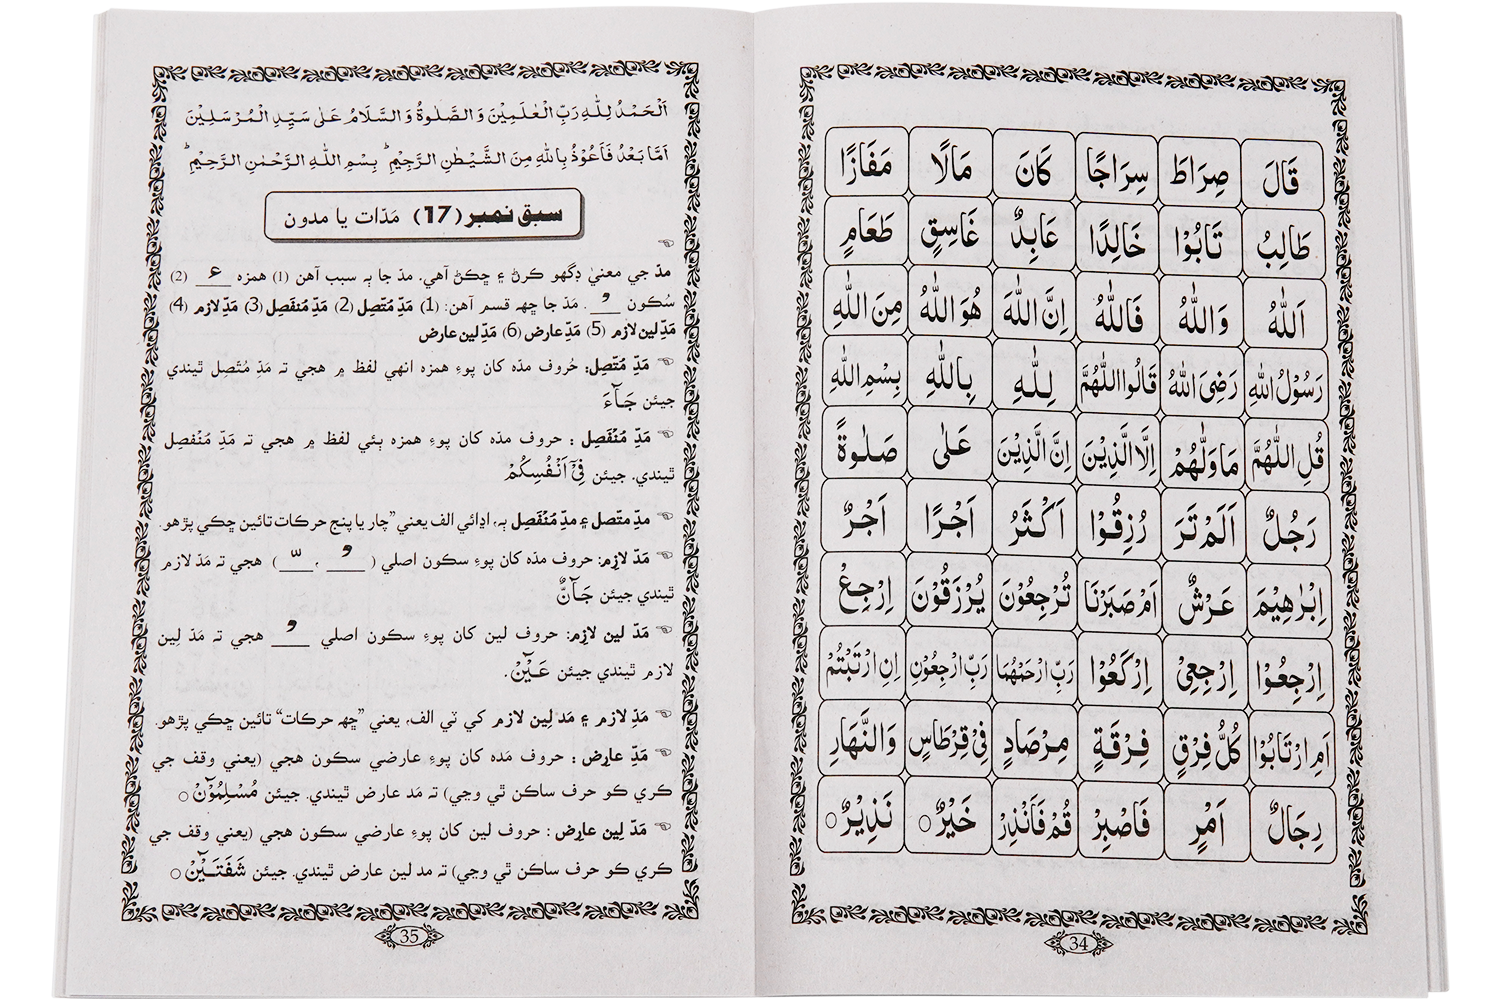 قَالَ صِرَاطَ سِرَاجًا كَانَ مَالًا مَفَازًا
طَالِبُ تَابُوْا خَالِدًا عَابِدٌ غَاسِقٍ طَعَامٍ
اَللّٰهُ وَاللّٰهُ فَاللّٰهُ اِنَّ اللّٰهَ هُوَ اللّٰهُ مِنَ اللّٰهِ
رَسُوْلُ اللّٰهِ رَضِیَ اللّٰهُ قَالُوا اللّٰهُمَّ لِلّٰهِ بِاللّٰهِ بِسْمِ اللّٰهِ
قُلِ اللّٰهُمَّ مَاوَلّٰهُمْ اِلَّا الَّذِيْنَ اِنَّ الَّذِيْنَ عَلٰى صَلٰوةً
رَجُلٌ اَلَمْ تَرَ رُزِقُوْا اَكْثَرُ اَجْرًا اَجْرٌ
اِبْرٰهِيْمَ عَرْشٌ اَمْ صَبَرْنَا تُرْجِعُوْنَ يُرْزَقُوْنَ اِرْجِعْ
اِرْجِعُوْا اِرْجِعِىْ اِرْكَعُوْا رَبِّ ارْحَمْهُمَا رَبِّ ارْجِعُوْنِ اِنِ ارْتَبْتُمْ
اَمِ ارْتَابُوْا كُلُّ فِرْقٍ فِرْقَةٍ مِرْصَادٍ فِىْ قِرْطَاسٍ وَالنَّهَارِ
رِجَالٌ اَمْرٍ فَاصْبِرْ قُمْ فَاَنْذِرْ خَيْرٌ ○ نَذِيْرٌ ○
34
اَلْحَمْدُ لِلّٰهِ رَبِّ الْعٰلَمِيْنَ وَ الصَّلٰوةُ وَ السَّلَامُ عَلٰى سَيِّدِ الْمُرْسَلِيْنَ
اَمَّا بَعْدُ فَاَعُوْذُ بِاللّٰهِ مِنَ الشَّيْطٰنِ الرَّجِيْمِ ؕ بِسْمِ اللّٰهِ الرَّحْمٰنِ الرَّحِيْمِ ؕ
سبق نمبر (17) مَدّات يا مدون
مدّ جي معنيٰ ڊگهو ڪرڻ ۽ ڇڪڻ آهي. مدّ جا ٻہ سبب آهن (1) همزه ء (2)
سُڪون ـْ مَدّ جا ڇهہ قسم آهن: (1) مَدِّ مُتّصِل (2) مَدِّ مُنفَصِل (3) مَدِّ لازم (4)
مَدِّ لين لازم (5) مَدِّ عارض (6) مَدِّ لين عارض
مَدِّ مُتّصِل: حُروف مدّه کان پوءِ همزه انهي لفظ ۾ هجي تہ مَدِّ مُتّصِل ٿيندي
جيئن جَآءَ
مَدِّ مُنْفَصِل : حروف مدّه کان پوءِ همزه ٻئي لفظ ۾ هجي تہ مَدِّ مُنْفصِل
ٿيندي. جيئن فِىْٓ اَنْفُسِكُمْ
مدِّ متّصل ۽ مدِّ مُنْفَصِل ٻہ، اڍائي الف يعني ”چار يا پنج حرڪات تائين ڇڪي پڙهو.
مَدّ لازِم: حروف مدّه کان پوءِ سڪون اصلي ( ـْ ، ـّ ) هجي تہ مَدّ لازم
ٿيندي جيئن جَآنٌّ
مَدّ لين لازِم: حروف لين کان پوءِ سڪون اصلي ـْ هجي تہ مَدّ لِين
لازم ٿيندي جيئن عَيْٓنْ.
مَدِّ لازم ۽ مَد لِين لازم کي ٽي الف، يعني ”ڇهہ حرڪات“ تائين ڇڪي پڙهو.
مَدِّ عارِض : حروف مَده کان پوءِ عارضي سڪون هجي (يعني وقف جي
ڪري ڪو حرف ساڪن ٿي وڃي) تہ مَد عارض ٿيندي. جيئن مُسْلِمُوْٓنْ ○
مَدّ لِين عارِض : حروف لين کان پوءِ عارضي سڪون هجي (يعني وقف جي
ڪري ڪو حرف ساڪن ٿي وڃي) تہ مد لين عارض ٿيندي. جيئن شَفَتَيْٓنْ ○
35